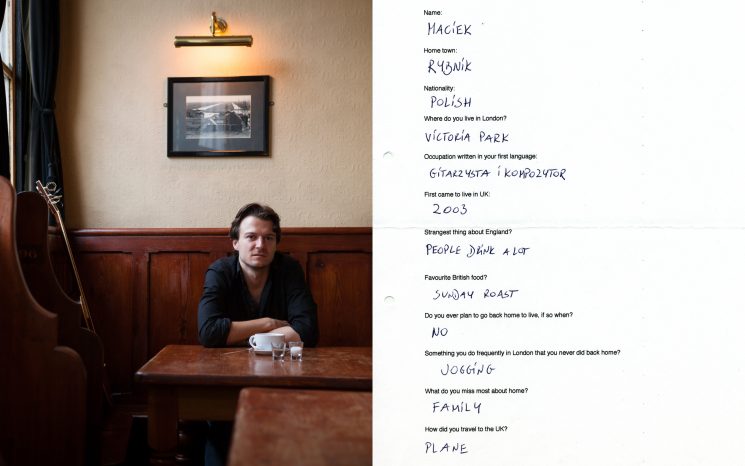 Name:
MACIEK
Home town:
RYBNIK
Nationality:
POLISH
Where do you live in London?
VICTORIA PARK
Occupation written in your first language:
GITARZYSTA I KOMPOZYTOR
First came to live in UK:
2003
Strangest thing about England?
PEOPLE DRINK A LOT
Favourite British food?
SUNDAY ROAST
Do you ever plan to go back home to live, if so when?
NO
Something you do frequently in London that you never did back home?
JOGGING
What do you miss most about home?
FAMILY
How did you travel to the UK?
PLANE